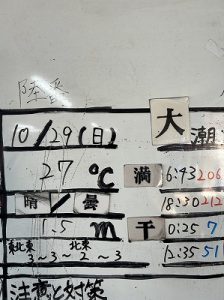 陸
10/29(日) 大潮
27℃ 満 6:43 206
晴/曇 18:30 212
1.5m 干 0:25 7
東北東 北東 12:35 51
3~3~2~3
注意と対策